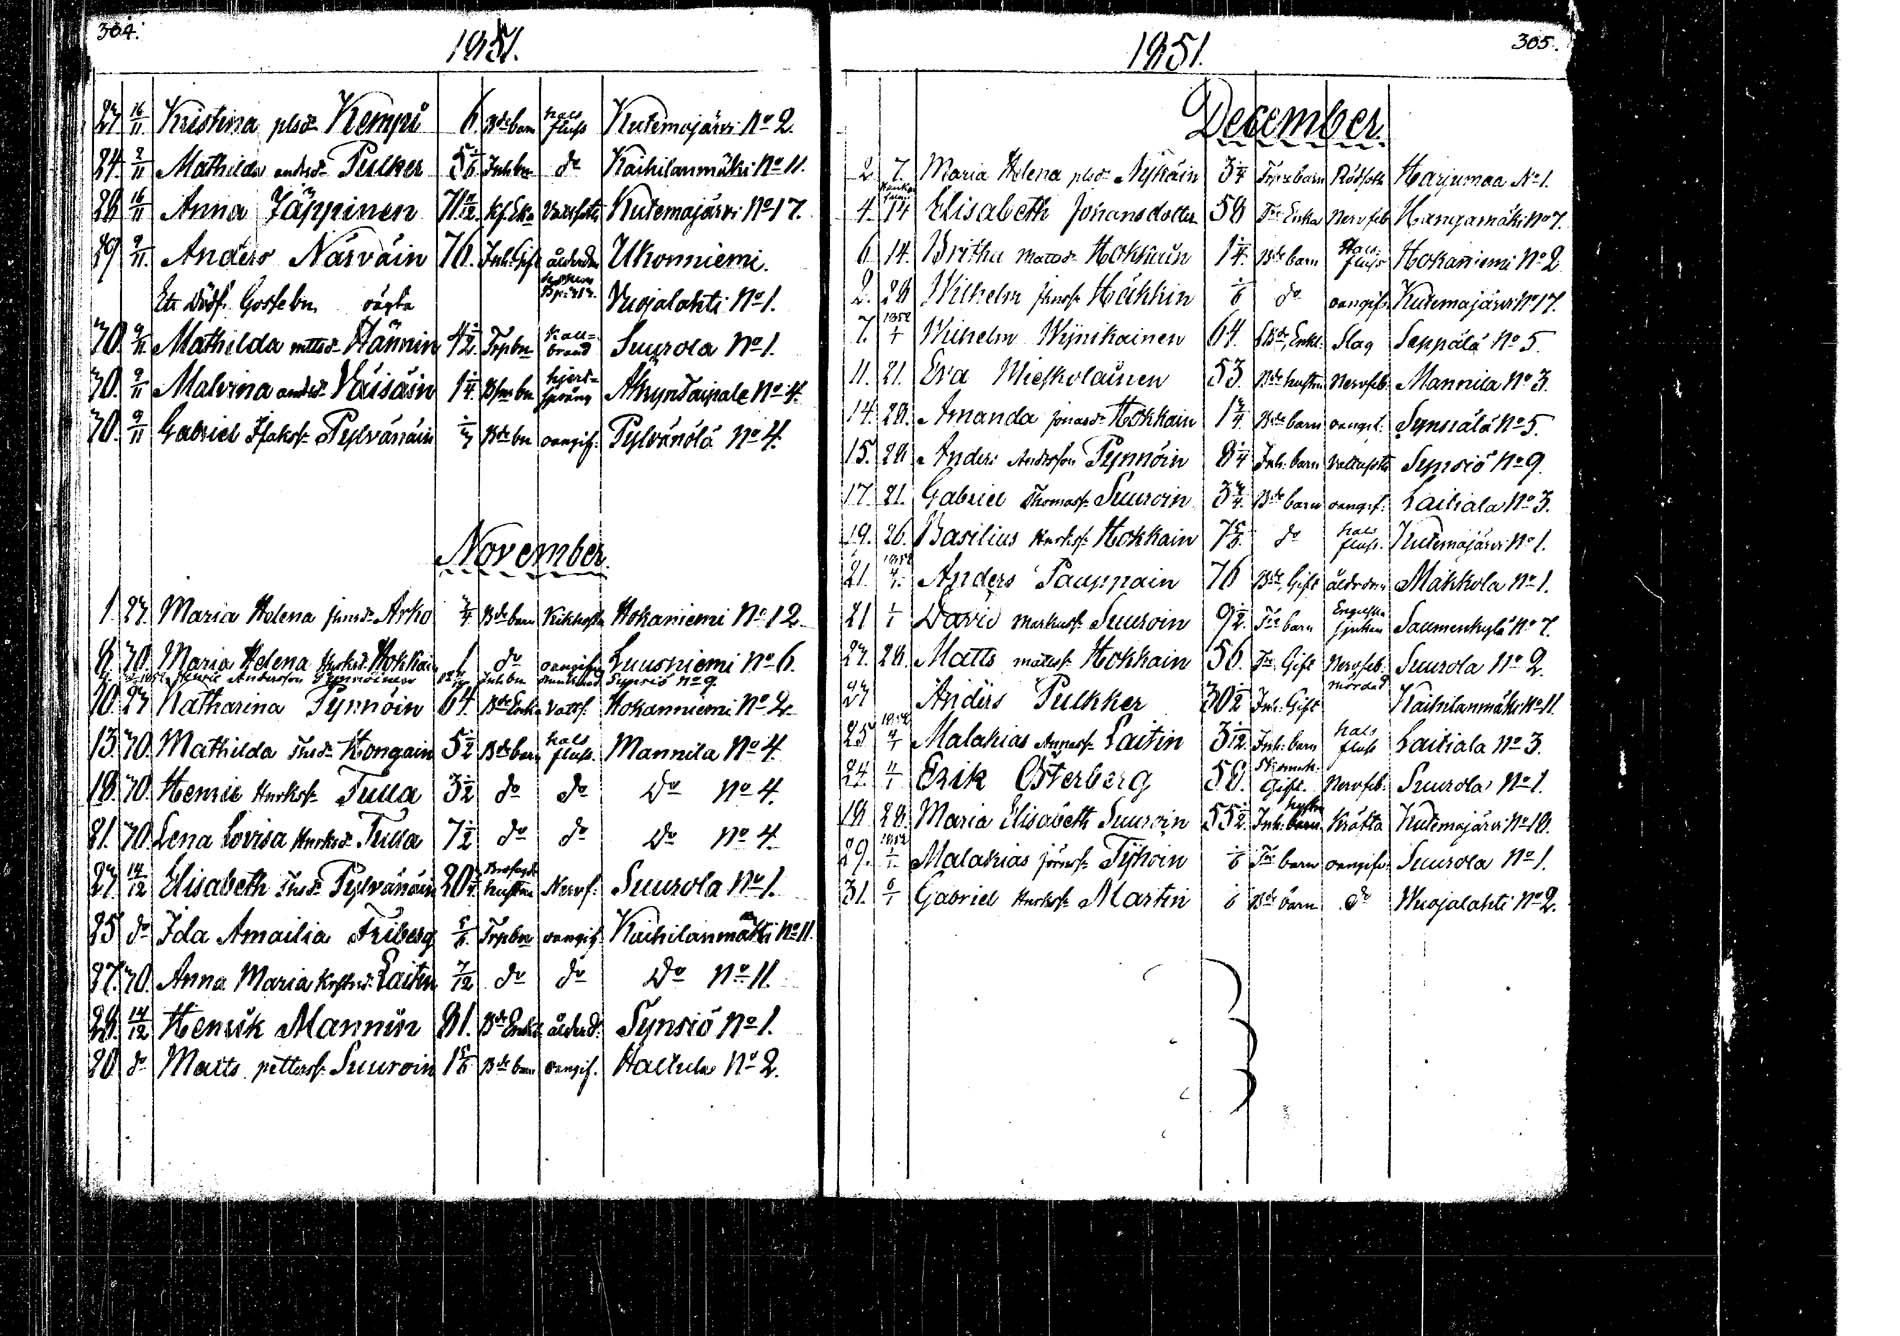 304.
1851.
27 16/11 Kristina plsdr Kempi 6 Bde barn hals fluss Kutemajärvi No 2.
24. 2/11 Mathilda andrsdr Pulker 5 1/6 Inh bn do Kaihilanmäki No 11.
28 16/11 Anna Jäppinen 71 Enka Vattsots Kutemajärvi No 17.
29 9/11 Anders Näsväin 76. Inh. Gift ålderdom Ukonniemi.
Ett Dödf. Gossebn oägta Vuojalahti No 1.
30. 9/11 Mathilda mttsdr Hännin 4 1/2 Trpbn kall-brand Suurola No 1.
30. 9/11 Malvina andrsdr Väisäin 1 1/4 bn hjert-språng No 4.
30. 9/11 Gabriel Isakss. Pylvänäin Bde bn oangif. Pylvänälä No 4.
November.
1. 23. Maria Helena Arko 3/4 Bde barn Kikhosta Hokaniemi No 12.
8. 30. Maria Helena Hnrksdr Hokkain 1 do oangifven Luusniemi No 6.
Henric Andersson Pynnöinen Inh bn Synsiö No 9.
10. 23 Katharina Pynnöin 64. Bde Enka Vatts. Hokanniemi No 2.
13. 30. Mathilda Thsdr Kongain 5 1/2 Bde barn hals fluss. Mannila No 4.
18. 30. Henric Hnrkss. Tulla 3 1/2 do do Do No 4.
21. 30. Lena Lovisa Hnrksdr Tulla 7 1/2 do do Do No 4.
23. 14/12 Elisabeth Thsdr Pylvänäin 20 hustru Nervf. Suurola No 1.
25 do Ida Amailia Friberg 5/6 Trpbn oangif. Kaihilanmäki No 11.
27. 30. Anna Maria Laitin 7/12 do do Do No 11.
28. 14/12 Henrik Mannin 81. Bde Enkl. ålderd. Synsiö No 1.
20 do Matts petterss. Suuroin 1 5/6 Bde barn oangif. Hallula No 2.
305.
1851.
December.
2. 7. Maria Helena plsdr Nykäin 3 1/4 Trpr barn Rödsoth Harjumaa No 1.
4. 14 Elisabeth Johansdotter 58 Enka Nervfeb. Hangamäki No 7.
6 14. Britha mattsdr Hokkain 1 1/4. Bde barn Hals-fluss Hokaniemi No 2
2. 28 Wilhelm Häkkin 1/6 do oangif. Kutemajärvi No 17.
7. 1852 1/1 Wilhelm Wynikainen 64. Enkl. Slag Seppälä No 5.
11. 21. Eva Mieskolainen 53. Bde hustru Nervfeb. Mannila No 3.
14. 28. Amanda jonasdr Hokkain 1 3/4 Bde barn oangif. No 5.
15. 28 Anders Andersson Pynnöin 8 1/4 Inh. barn Vattusots Synsiö No 9.
17. 21. Gabriel Thomass. Suuroin 3 3/4. Bde barn oangif. Laitiala No 3.
19. 26. Basilius Hnrkss. Hokkain 7 5/6. do hals fluss. Kutemajärvi No 1.
21. 1852 Anders Pauppain 76 Bde Gift ålderdom Mäkkola No 1.
21 1/1 David markuss. Suuroin 9 1/2. barn Engelska sjukan Saumenkylä No 7.
27. 28. Matts matss. Hokkain 56. Gift Nervfeb. Suurola No 2.
27 Anders Pulkker 30 1/2 Inh. Gift mördad Kaihilanmäki No 11.
25 1852 4/1 Malakias Laitin 3 1/12. Inh. barn hals fluss Laitiala No 3.
24. 4/1 Erik Österberg 58. Gift. Nervfeb. Suurola No 1.
18 28. Maria Elisabeth Suuroin 55 1/2. Inh. hustru Kräfta Kutemajärvi No 18.
29. 1852 1/1. Malakias Tyhoin 1/6 barn oangifv. Suurola No 1.
31. 6/1 Gabriel Hnrkss. Martin Bde barn do Wuojalahti No 2.